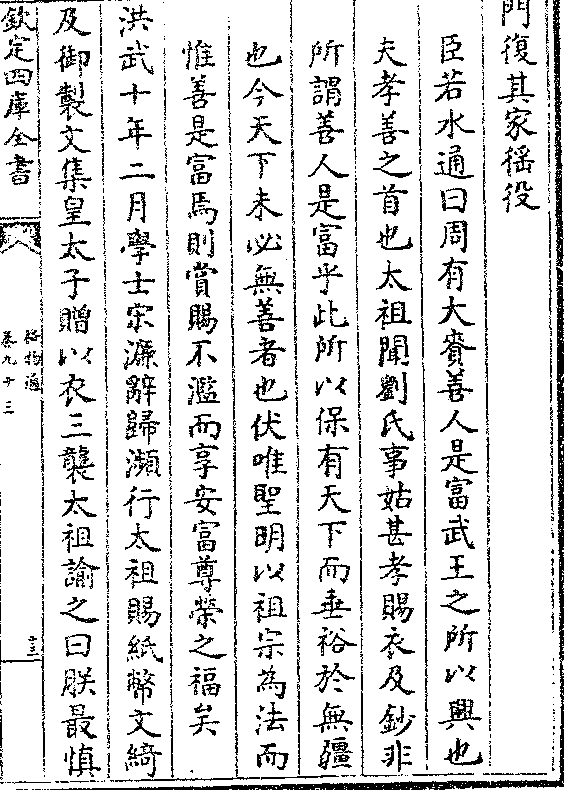 門復其家徭役
臣若水通曰周有大賚善人是富武王之所以興也
夫孝善之首也太祖聞劉氏事姑甚孝賜衣及鈔非
所謂善人是富乎此所以保有天下而垂裕於無疆
也今天下未必無善者也伏唯聖明以祖宗為法而
惟善是富焉則賞賜不濫而享安富尊榮之福矣
洪武十年二月學士宋濂辭歸瀕行太祖賜紙幣文綺
及御製文集皇太子贈以衣三襲太祖諭之曰朕最慎
欽定四庫全書
格物通
卷九十三
十三